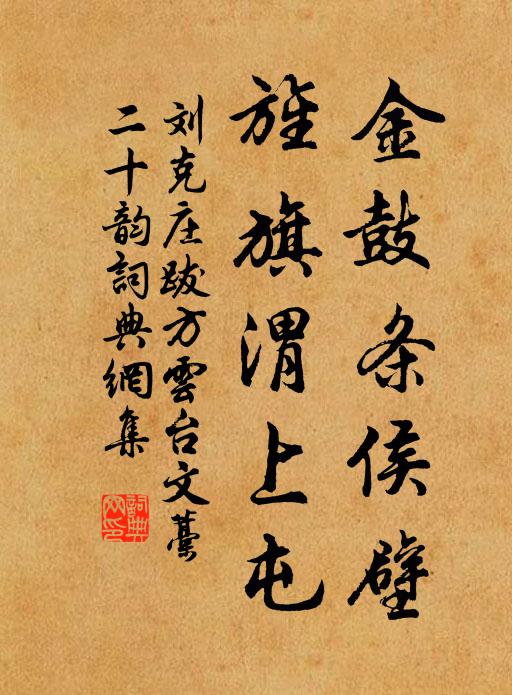 金鼓条侯壁
旌旗渭上屯
刘克庄跋方雲台文藁
二十韵詞典網集
詞典網印